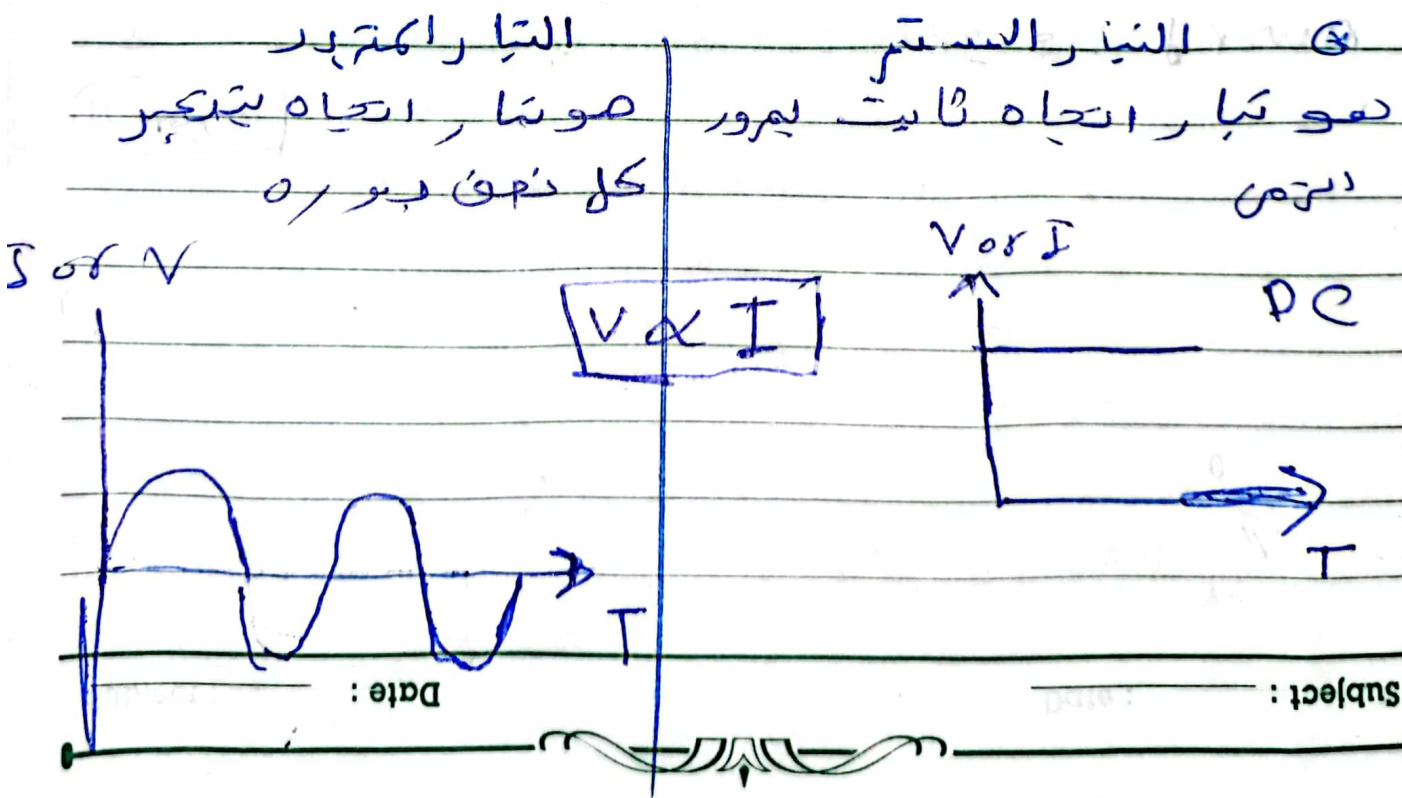 التيار المستمر
هو تيار اتجاه ثابت بمرور
الزمن
V or I
DC
T
التيار المتردد
هو تيار اتجاه يتغير
كل نصف دوره
I or V
V ∝ I
T
Subject :
Date :